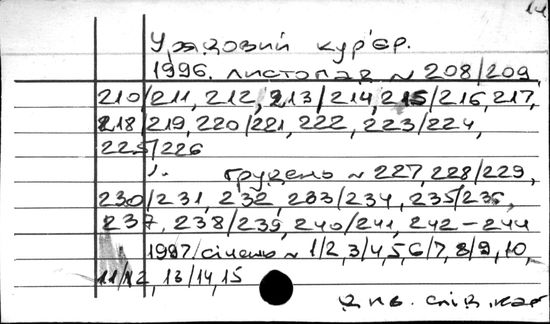 Урядовий кур'єр.
1996. листопад № 208/209,
210/211, 212, 213/214, 215/216, 217,
218/219, 220/221, 222, 223/224,
225/226
грудень № 227, 228/229,
230/231, 232, 233/234, 235/236,
237, 238/239, 240/241, 242-244
1997/січень № 1/2, 3/4, 5, 6/7, 8/9, 10,
11/12, 13/14, 15